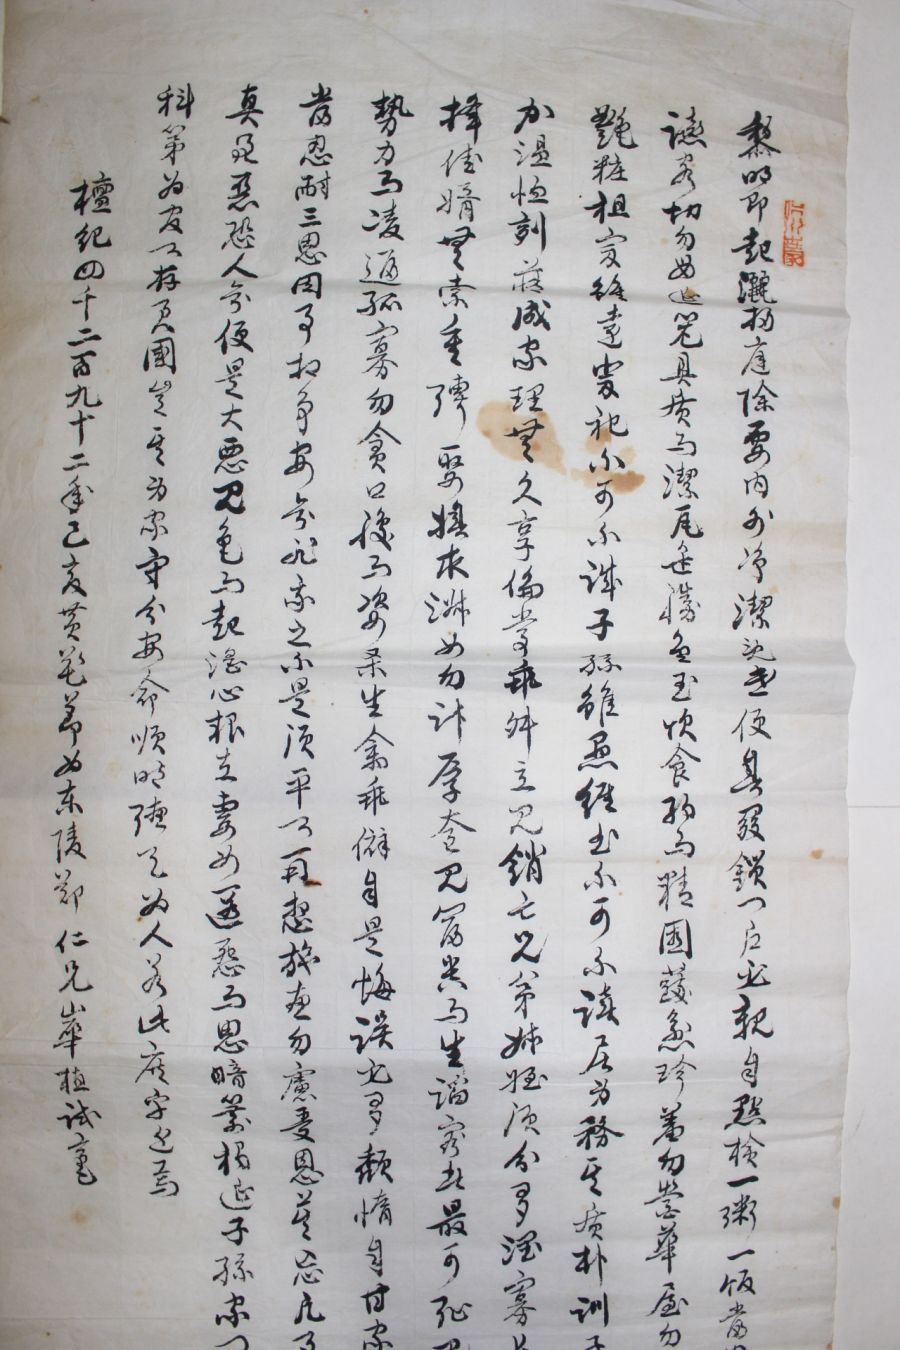 黎明即起灑掃庭除要内外淨潔既昏便息關鎖門戶必親自點檢一粥一飯當
讌客切勿留連器具質而潔瓦缶勝金玉飲食約而精園蔬愈珍羞勿營華屋勿
艷粧祖宗雖遠祭祀不可不誠子孫雖愚經書不可不讀居身務其質朴訓子
加温恤刻薄成家理無久享倫常乖舛立見銷亡兄弟叔姪須分多潤寡長
擇佳婿無索重聘娶媳求淑女勿計厚奩見富貴而生諂容者最可恥見
勢力而凌逼孤寡勿貪口腹而恣殺生禽乖僻自是悔誤必多頹惰自甘家
當忍耐三思因事相爭安知非我之不是須平心再想施惠勿慮受恩莫忘凡事
真善惡恐人知便是大惡見色而起淫心報在妻女匿怨而思暗箭禍延子孫家門
科第為官心存君國豈其身家守分安命順時聽天為人若此庶乎近焉
檀紀四千二百九十二年己亥黄花節為東陵鄭仁兄崋植試毫